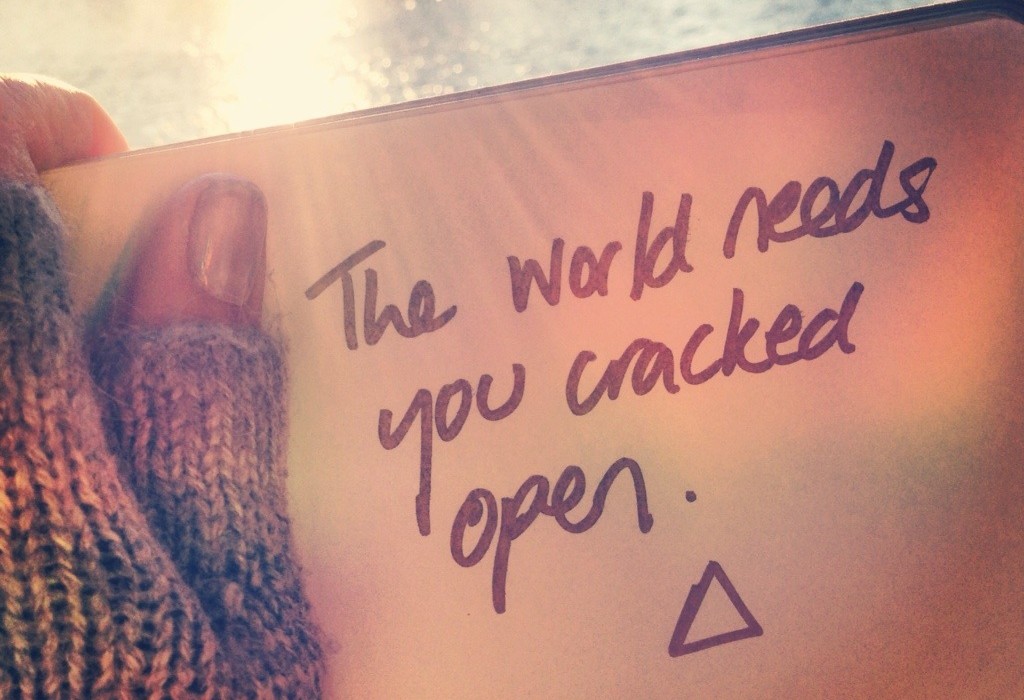 The world needs
you cracked
open.